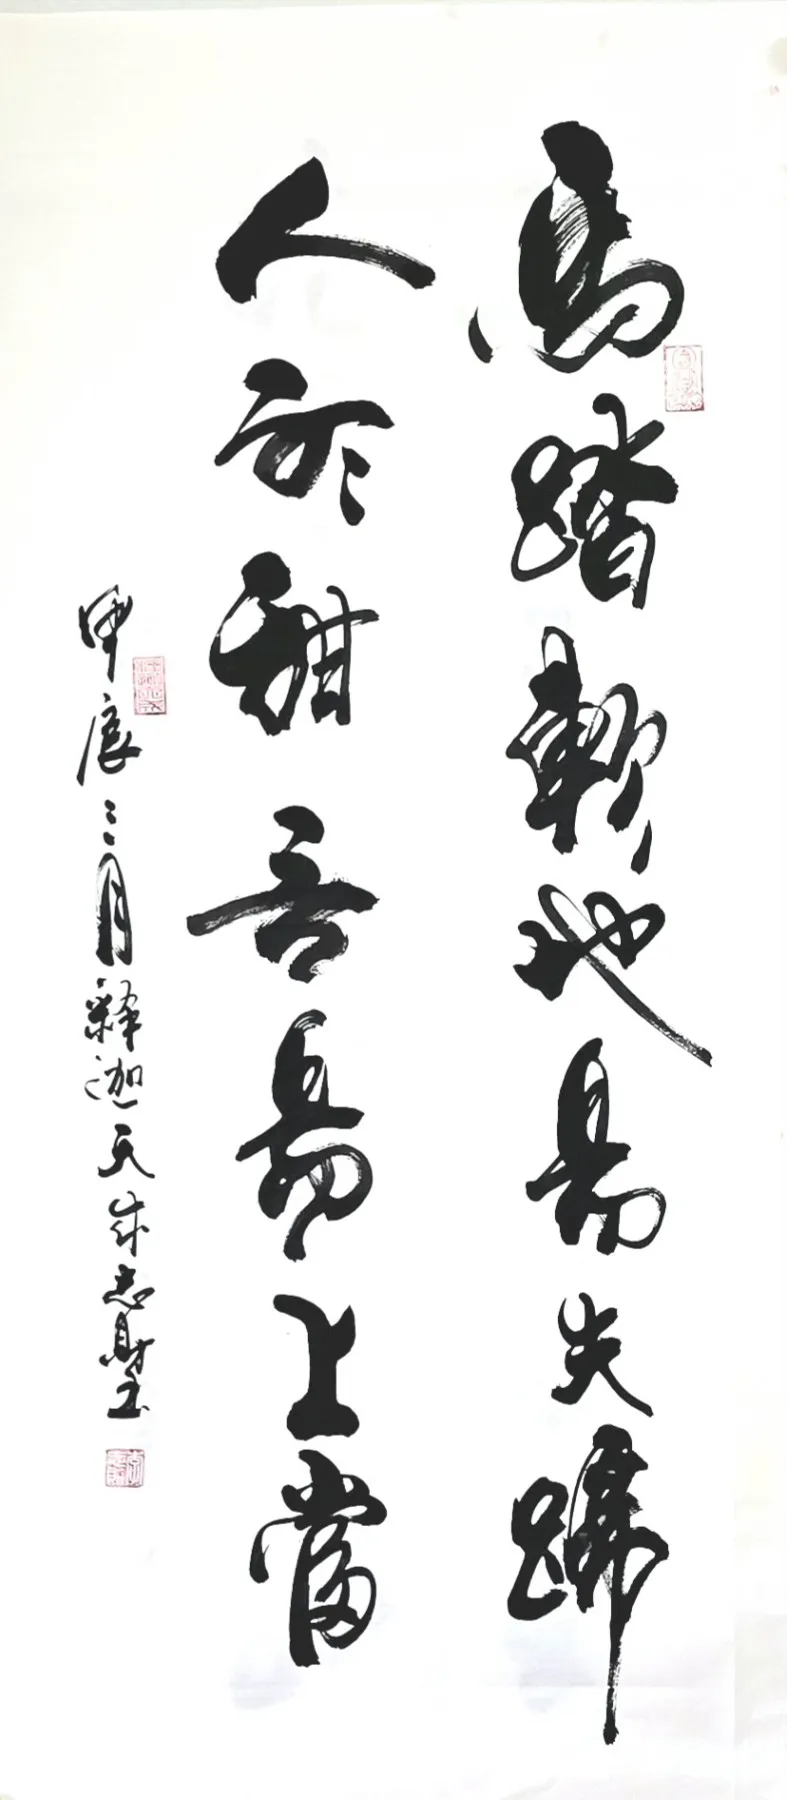 馬踏軟地易失蹄
人於甜言易上當
甲辰三月釋迦天成志財書